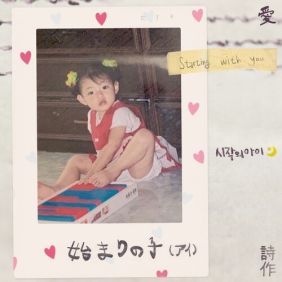 愛
Starting with you
시작의아이
始まりの子(アイ)
詩作